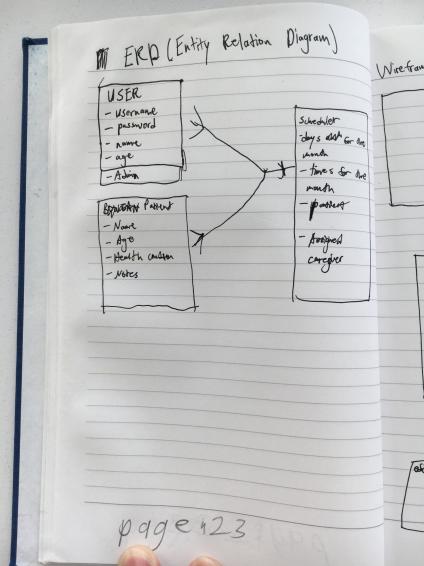 ERD (Entity Relation Diagram)
USER
- username
- password
- name
- age
- Admin
Patient
- Name
- Age
- Health
- Notes
Scheduler
days for the
month
- times for the
month
- patient
- Assigned
caregiver
Wirefram
page 23